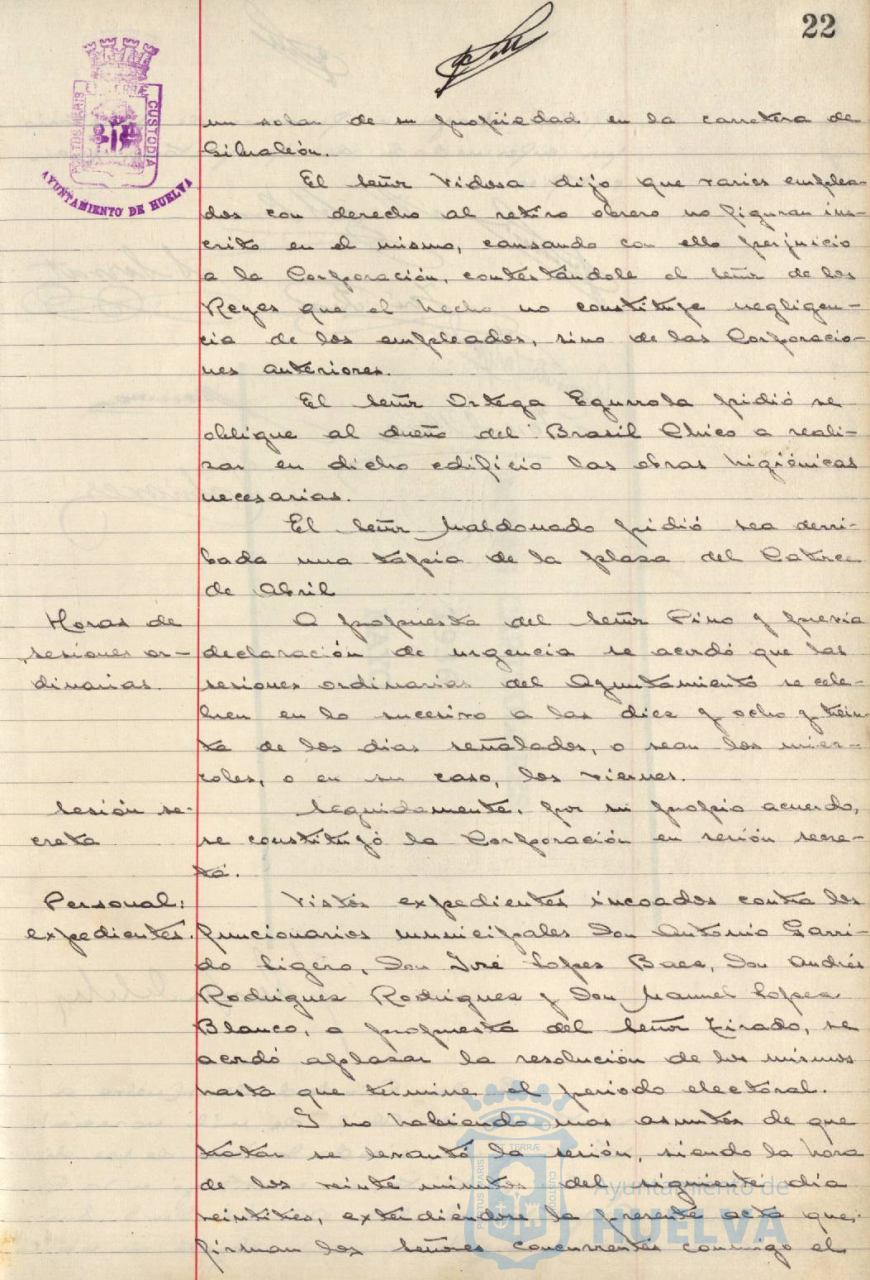 22
PORTUS MARIS ET TERRÆ CUSTODIA
AYUNTAMIENTO DE HUELVA
un solar de su propiedad en la carretera de
Gibraleón.
El señor Vidosa dijo que varios emplea-
dos con derecho al retiro obrero no figuran ins-
crito en el mismo, causando con ello perjuicio
a la Corporación, contestándole el señor de los
Reyes que el hecho no constituye negligen-
cia de los empleados, sino de las Corporacio-
nes anteriores.
El señor Ortega Egurrola pidió se
obligue al dueño del Brasil Chico a reali-
zar en dicho edificio las obras higiénicas
necesarias.
El señor Maldonado pidió sea derri-
bada una tapia de la plaza del Catorce
de Abril
Horas de
sesiones or-
dinarias.
A propuesta del señor Pino y previa
declaración de urgencia se acordó que las
sesiones ordinarias del Ayuntamiento se cele-
bren en lo sucesivo a las diez y ocho y trein-
ta de los días señalados, o sean los miér-
coles, o en su caso, los viernes.
Sesión se-
creta
Seguidamente, por su propio acuerdo,
se constituyó la Corporación en sesión secre-
ta.
Personal:
expedientes.
Vistos expedientes incoados contra los
funcionarios municipales Don Antonio Garri-
do Ligero, Don José Lopes Baes, Don Andrés
Rodrigues Rodrigues y Don Manuel Lopes
Blanco, a propuesta del señor Tirado, se
acordó aplazar la resolución de los mismos
hasta que termine el período electoral.
Y no habiendo mas asuntos de que
tratar se levantó la sesión, siendo la hora
de los veinte minutos del siguiente día
veintitres, extendiéndose la presente acta que,
firman los señores concurrentes conmigo el
Ayuntamiento de
HUELVA